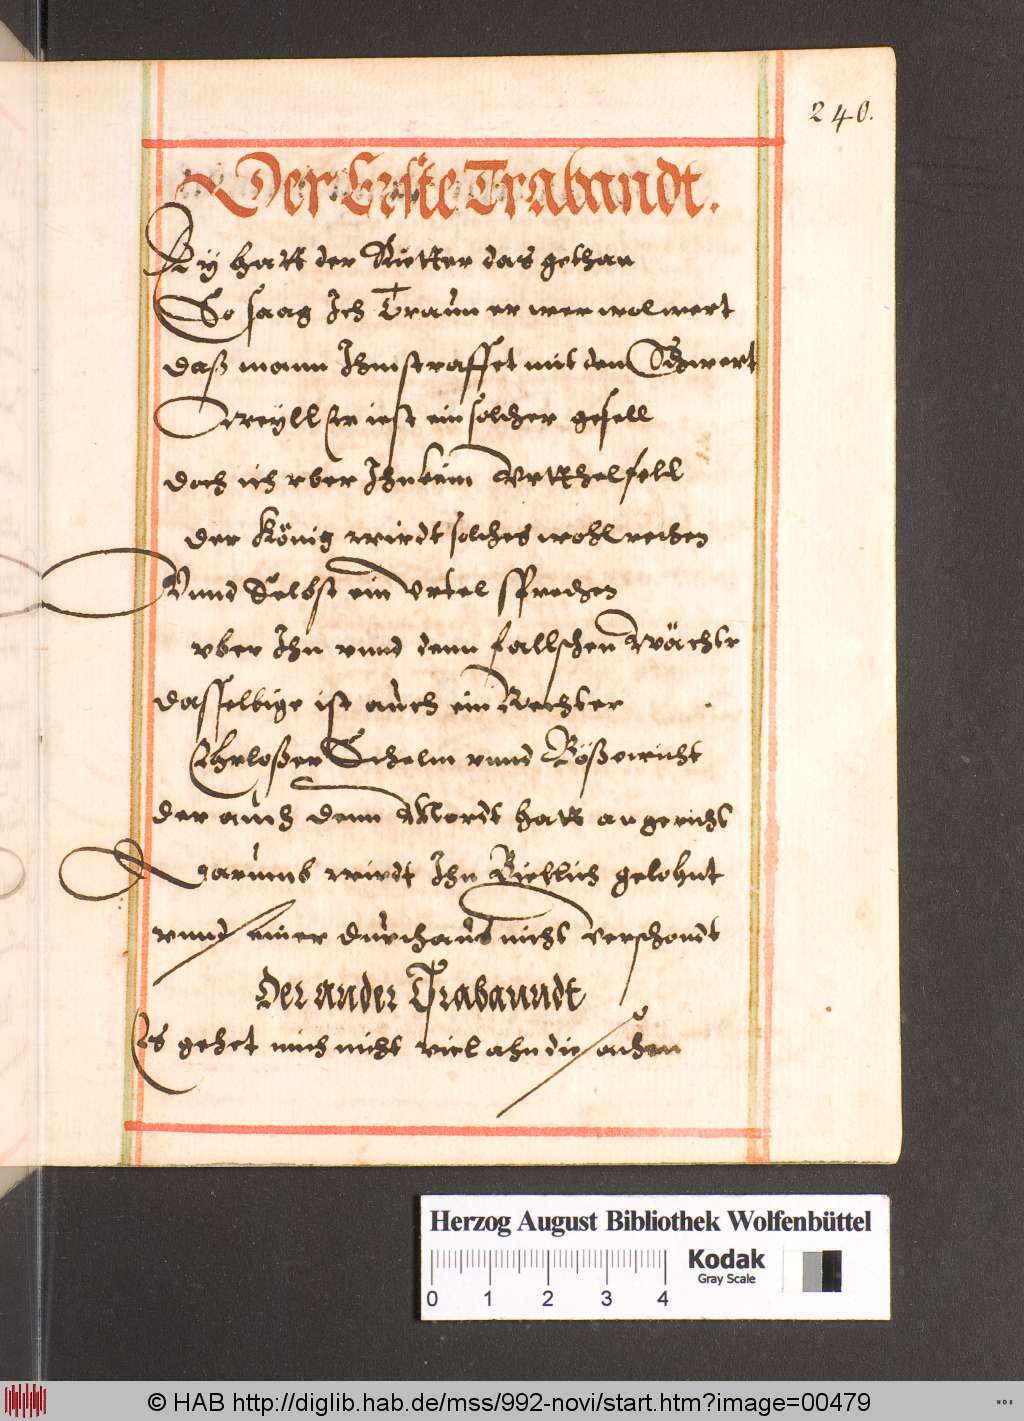 240.
Der Erste Trabandt.
Ey hatt der Ritter das gethan
So saag Ich Traun er wer wol wert
daß mann Ihm straffet mit den Schwert
Weyll Er ist ein solcher gesell
doch ich vber Ihn kein Vrtthel fell
der König wirdt solches wohl rechen
Vnnd Selbst ein Vrtel sprechen
vber Ihn vnnd denn fallschen Wächtr
dasselbige ist auch ein Rechter
Ehrloßer Schelm vnnd Bößewicht
der auch denn Mordt hatt angericht
Darumb wirdt Ihn Biellich gelohnt
vnnd einer durchaus nicht verschondt
Der ander Trabanndt
Es gehet mich nicht viel ahn die sachen
Herzog August Bibliothek Wolfenbüttel
Kodak
Gray Scale
0 1 2 3 4
© HAB http://diglib.hab.de/mss/992-novi/start.htm?image=00479